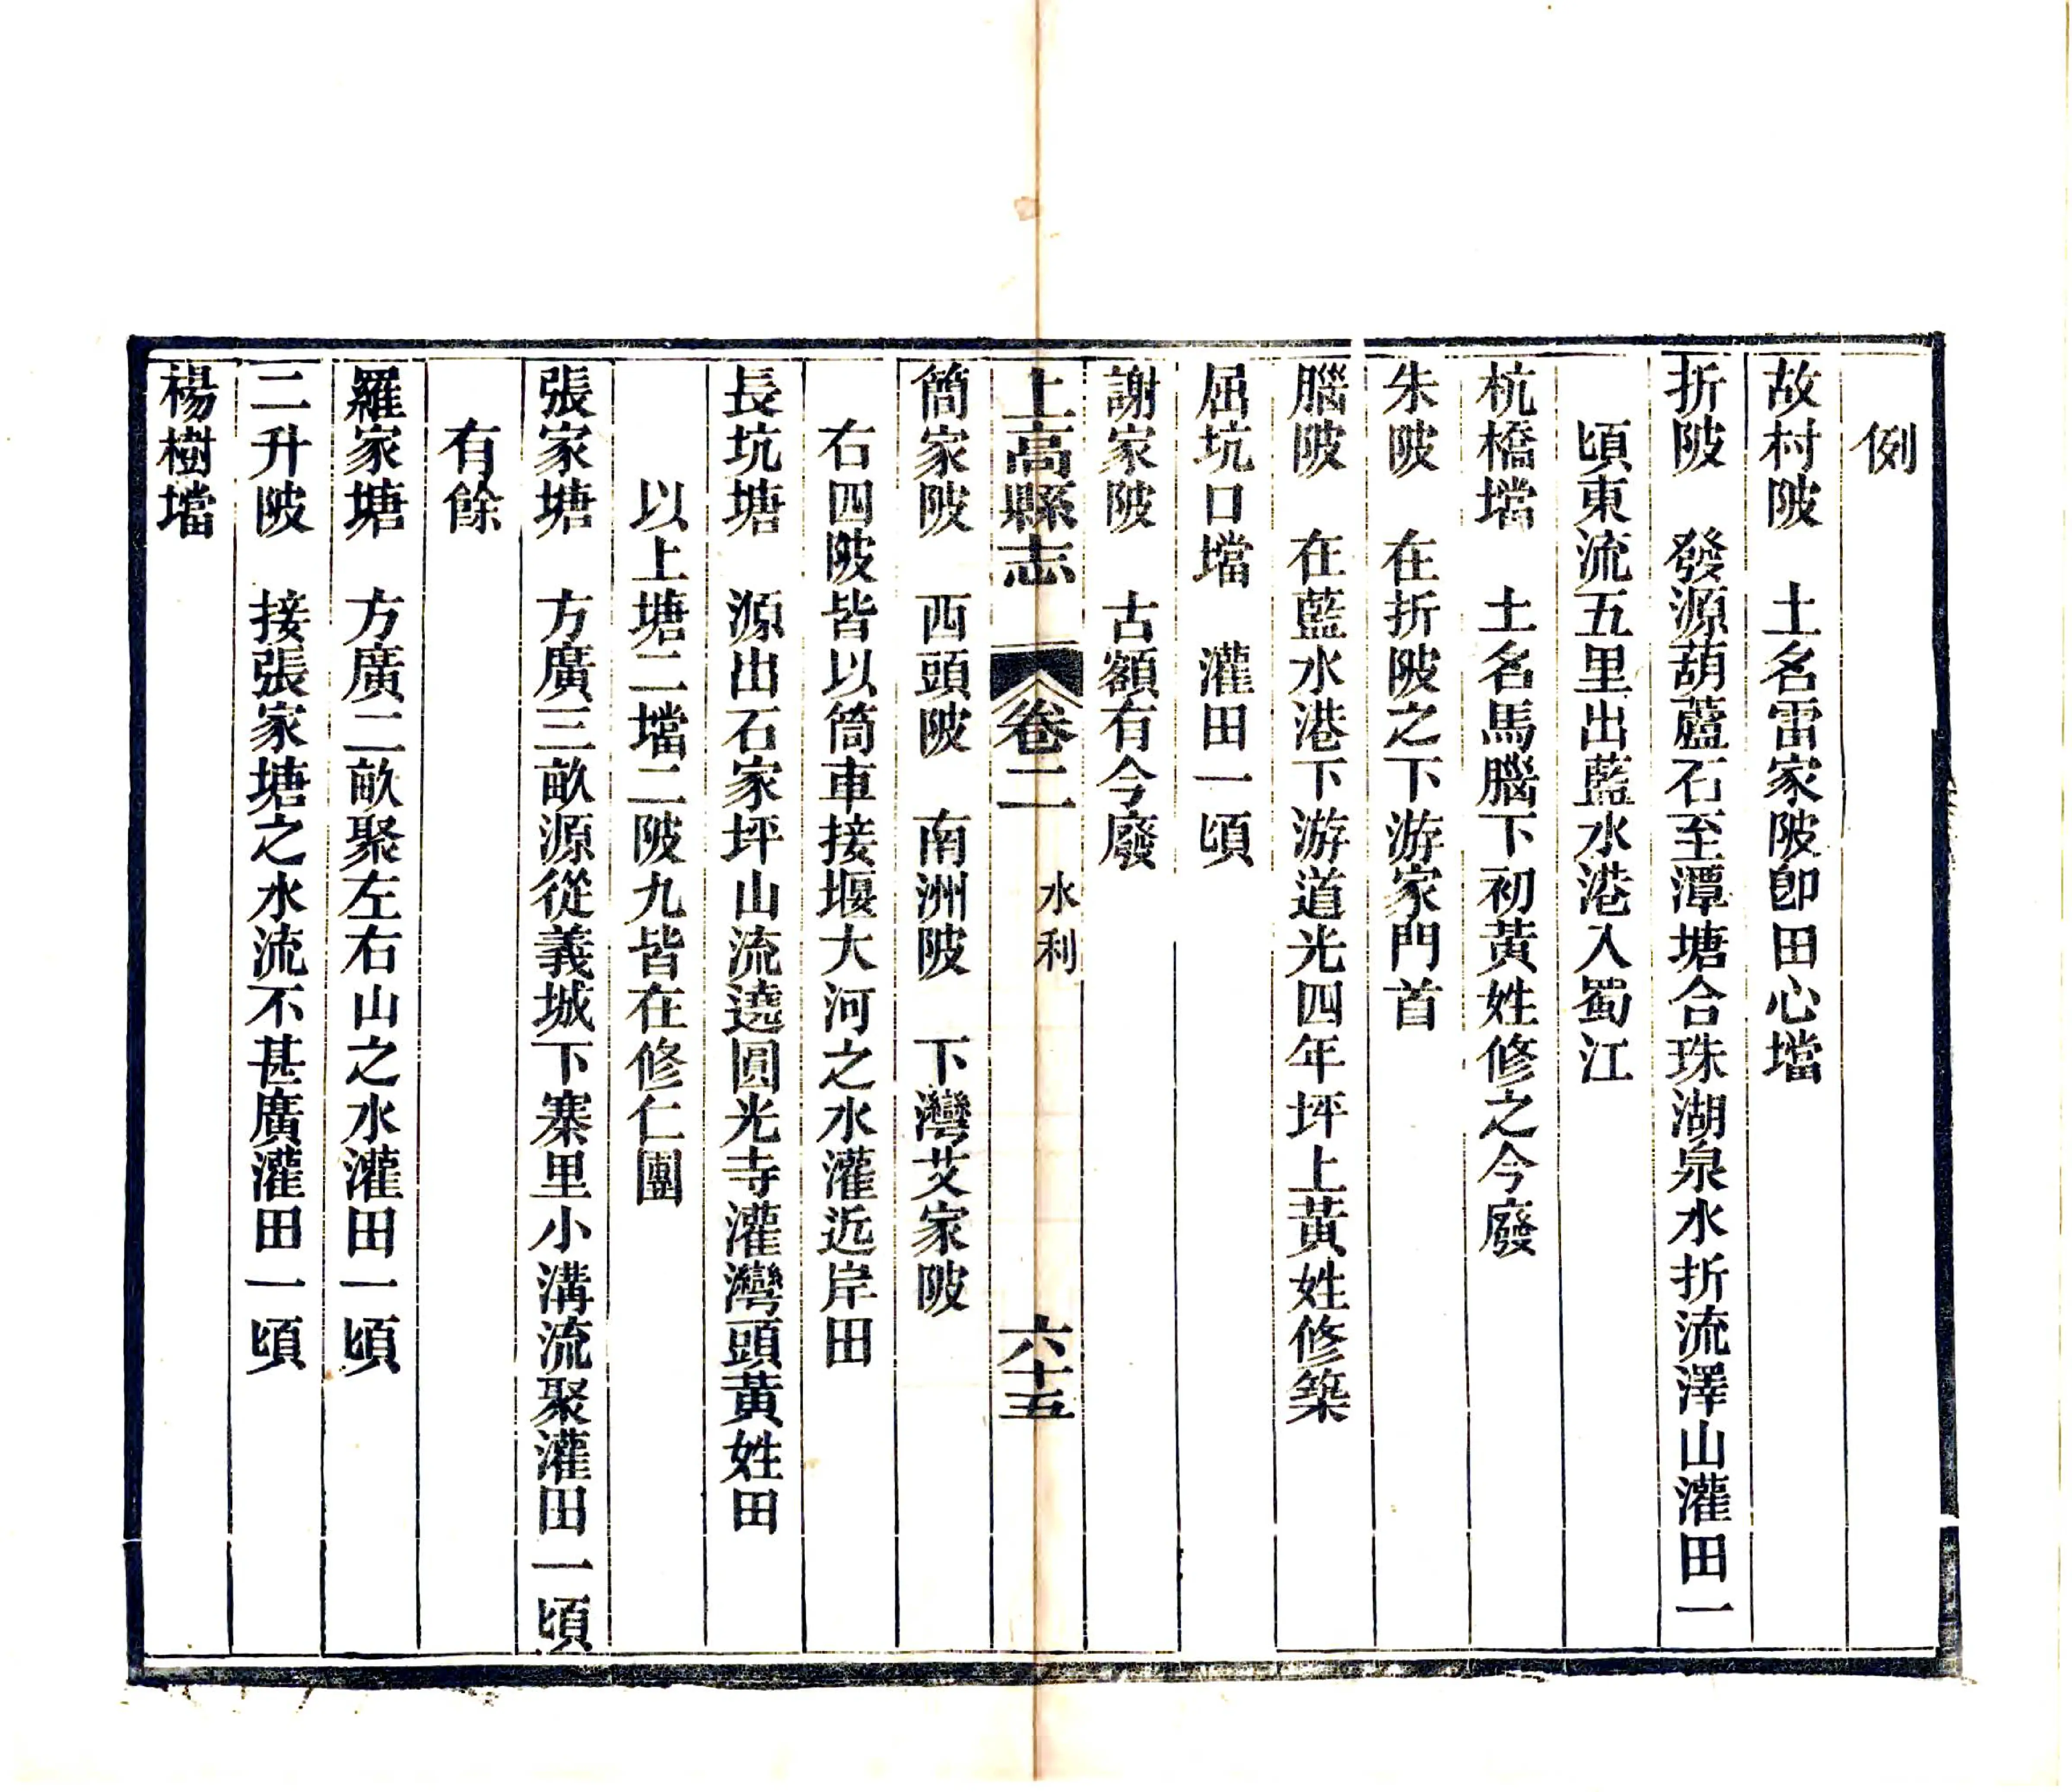 例
故村陂　土名雷家陂卽田心壋
折陂　發源葫蘆石至潭塘合珠湖泉水折流澤山灌田一
頃東流五里出藍水港入蜀江
杭橋壋　土名馬腦下初黃姓修之今廢
朱陂　在折陂之下游家門首
腦陂　在藍水港下游道光四年坪上黃姓修築
屈坑口壋　灌田一頃
謝家陂　古額有今廢
上高縣志　卷二　水利　六十五
簡家陂　西頭陂　南洲陂　下灣艾家陂
右四陂皆以筒車接堰大河之水灌近岸田
長坑塘　源出石家坪山流遶圓光寺灌灣頭黃姓田
以上塘二壋二陂九皆在修仁團
張家塘　方廣三畝源從義城下寨里小溝流聚灌田一頃
有餘
羅家塘　方廣二畝聚左右山之水灌田一頃
二升陂　接張家塘之水流不甚廣灌田一頃
楊樹壋